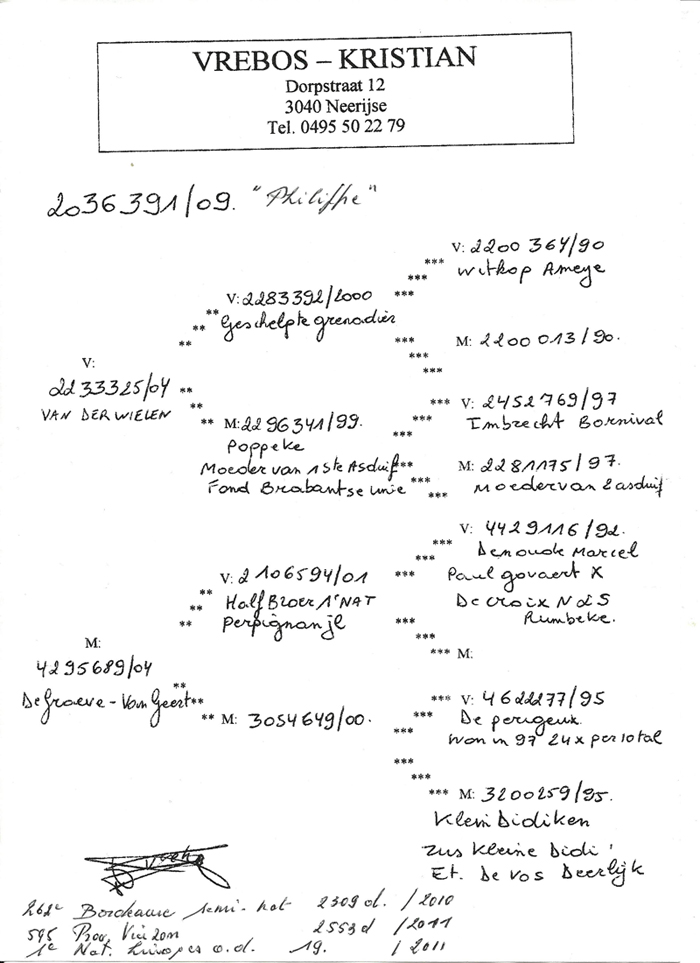 VREBOS – KRISTIAN
Dorpstraat 12
3040 Neerijse
Tel. 0495 50 22 79
2036391/09. "Philiffe"
V: 2200 364/90
Witkop Ameye
V: 2283392/2000
Geschelpte grenadier
M: 2200 013/90.
V:
2233325/04
VAN DER WIELEN
V: 2452769/97
Imbrecht Bornival
M: 2296341/99.
Poppeke
Moeder van 1ste Asduif
Fond Brabantse unie
M: 2281175/97.
Moeder van 2 asduif
V: 4429116/92.
Den oude Marcel
Paul govaert X
De croix N&S
Rumbeke.
V: 2106594/01
Half Broer 1e NAT
perpignan jl
M:
M:
4295689/04
De Graeve - Van Geert
V: 4622277/95
De perigeux
Won in 97 24x per 10tal
M: 3054649/00.
M: 3200259/95.
Klein Didiken
zus Kleine Didi'
Et. De Vos Deerlijk
262e Bordeaux semi-nat 2309 d. /2010
595 Prov. Vierzon 2553 d /2011
1e Nat. Limoges o.d. 19. /2011